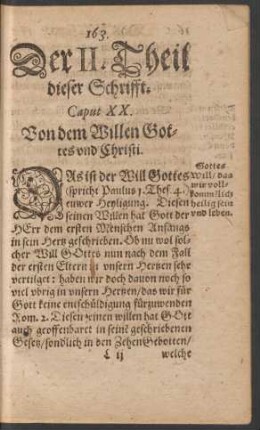 163.
Der II. Theil
dieser Schrifft.
Caput XX.
Von dem Willen Got-
tes vnd Christi.
DAs ist der Will Gottes
(spricht Paulus 1. Thes. 4.
euwer Heyligung. Diesen
seinen Willen hat Gott der
HErr dem ersten Menschen Anfangs
in sein Hertz geschrieben. Ob nu wol sol-
cher Will GOttes nun nach dem Fall
der ersten Eltern in vnsern Hertzen sehr
vertilget: haben wir doch dauon noch so
viel vbrig in vnsern Hertzen, das wir für
Gott keine entschüldigung fürzuwenden
Rom. 2. Diesen seinen willen hat GOtt
auch geoffenbaret in seinẽ geschriebenen
Gesetz, sondlich in den Zehen Gebotten,
L ij welche
Gottes
Will, das
wir voll-
kommlich
heilig sein
vnd leben.